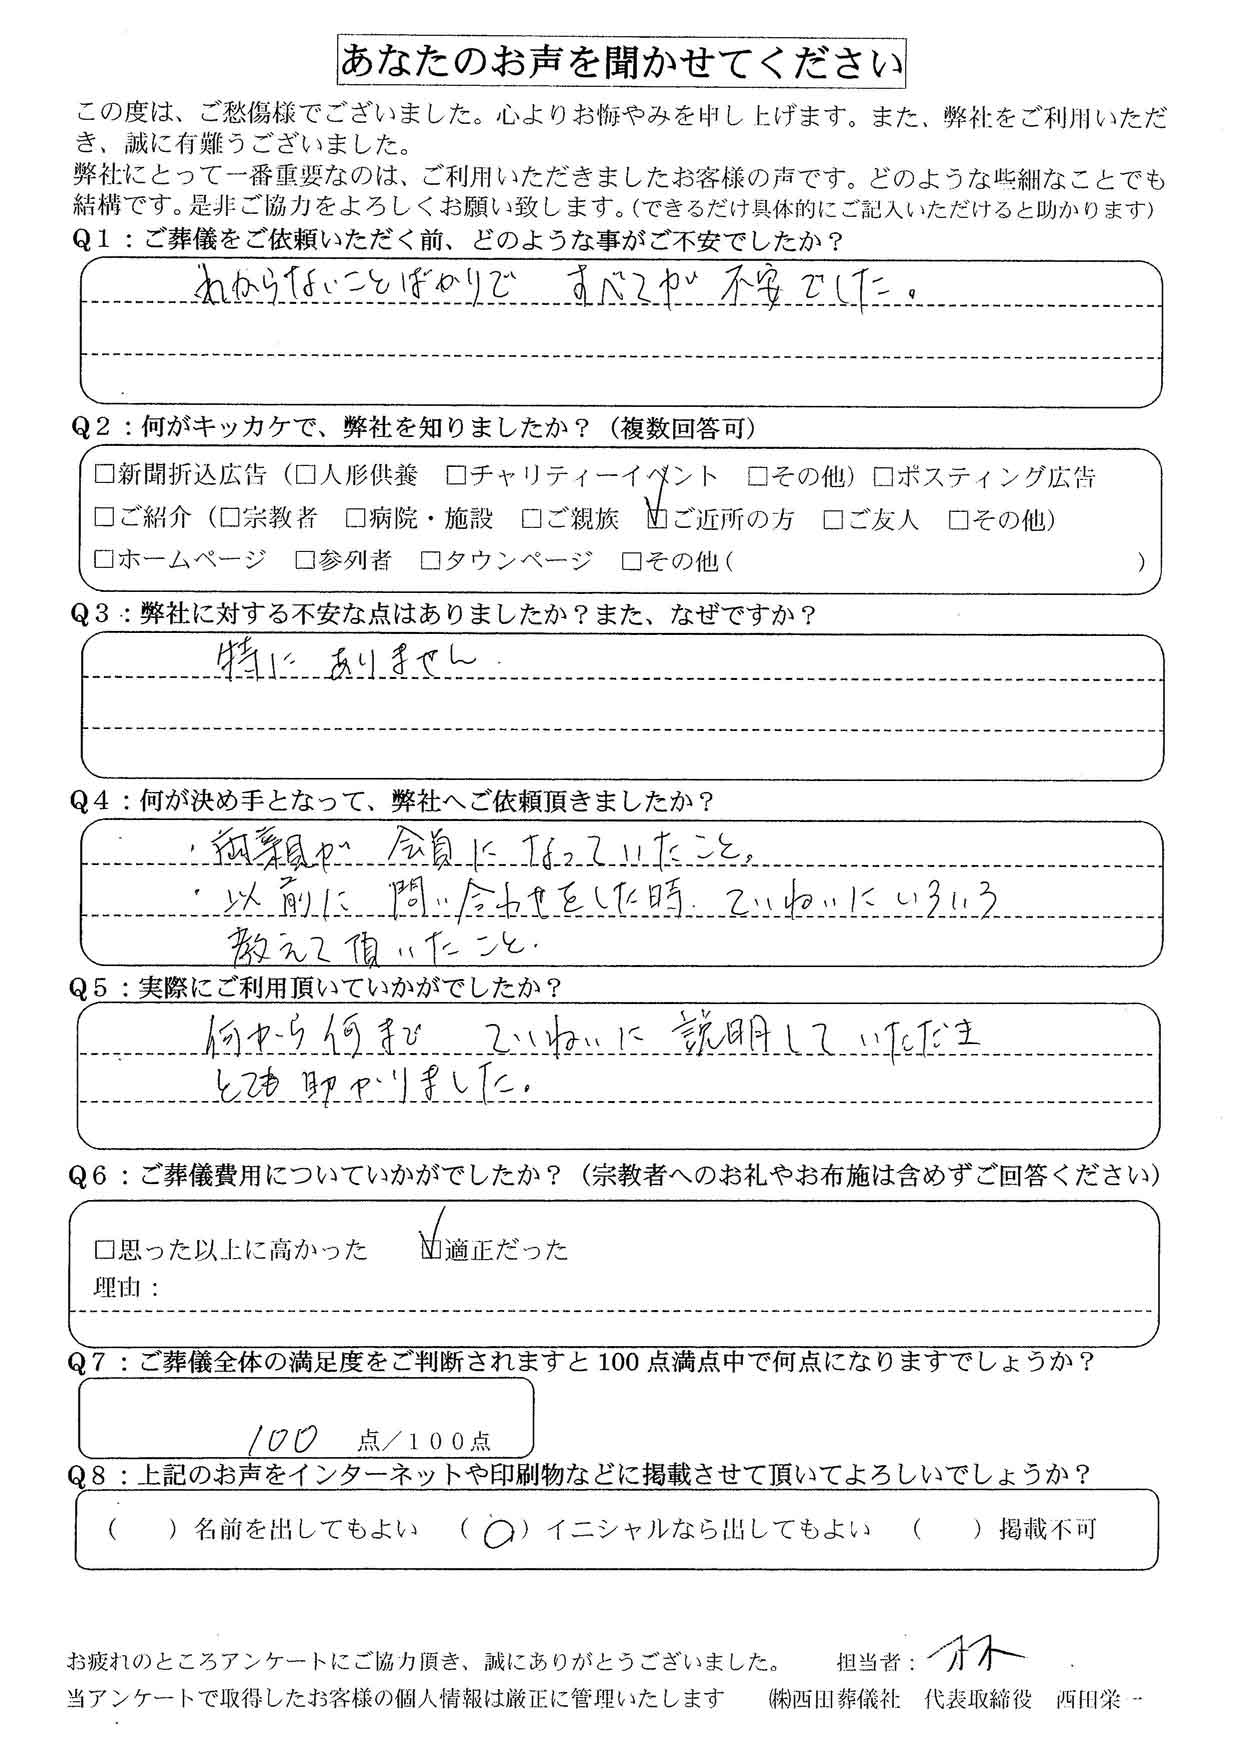 あなたのお声を聞かせてください
この度は、ご愁傷様でございました。心よりお悔やみを申し上げます。また、弊社をご利用いただ
き、誠に有難うございました。
弊社にとって一番重要なのは、ご利用いただきましたお客様の声です。どのような些細なことでも
結構です。是非ご協力をよろしくお願い致します。（できるだけ具体的にご記入いただけると助かります）
Q1：ご葬儀をご依頼いただく前、どのような事がご不安でしたか？
わからないことばかりで すべてが 不安でした。
Q2：何がキッカケで、弊社を知りましたか？（複数回答可）
□新聞折込広告（□人形供養 □チャリティーイベント □その他）□ポスティング広告
□ご紹介（□宗教者 □病院・施設 □ご親族 ☑ご近所の方 □ご友人 □その他）
□ホームページ □参列者 □タウンページ □その他（ ）
Q3：弊社に対する不安な点はありましたか？また、なぜですか？
特に ありません.
Q4：何が決め手となって、弊社へご依頼頂きましたか？
・両親が 会員になっていたこと。
・以前に 問い合わせをした時、ていねいにいろいろ
教えて頂いたこと.
Q5：実際にご利用頂いていかがでしたか？
何から何まで ていねいに 説明して いただき
とても助かりました。
Q6：ご葬儀費用についていかがでしたか？（宗教者へのお礼やお布施は含めずご回答ください）
□思った以上に高かった ☑適正だった
理由：
Q7：ご葬儀全体の満足度をご判断されますと100点満点中で何点になりますでしょうか？
100 点／１００点
Q8：上記のお声をインターネットや印刷物などに掲載させて頂いてよろしいでしょうか？
（ ）名前を出してもよい （○）イニシャルなら出してもよい （ ）掲載不可
お疲れのところアンケートにご協力頂き、誠にありがとうございました。 担当者：林
当アンケートで取得したお客様の個人情報は厳正に管理いたします ㈱西田葬儀社 代表取締役 西田栄一